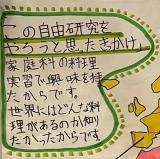 この自由研究を
やろうと思ったきかけ
家庭科の料理
実習で興味を持っ
たからです。
世界にはどんな料
理があるのか知り
たかったからです